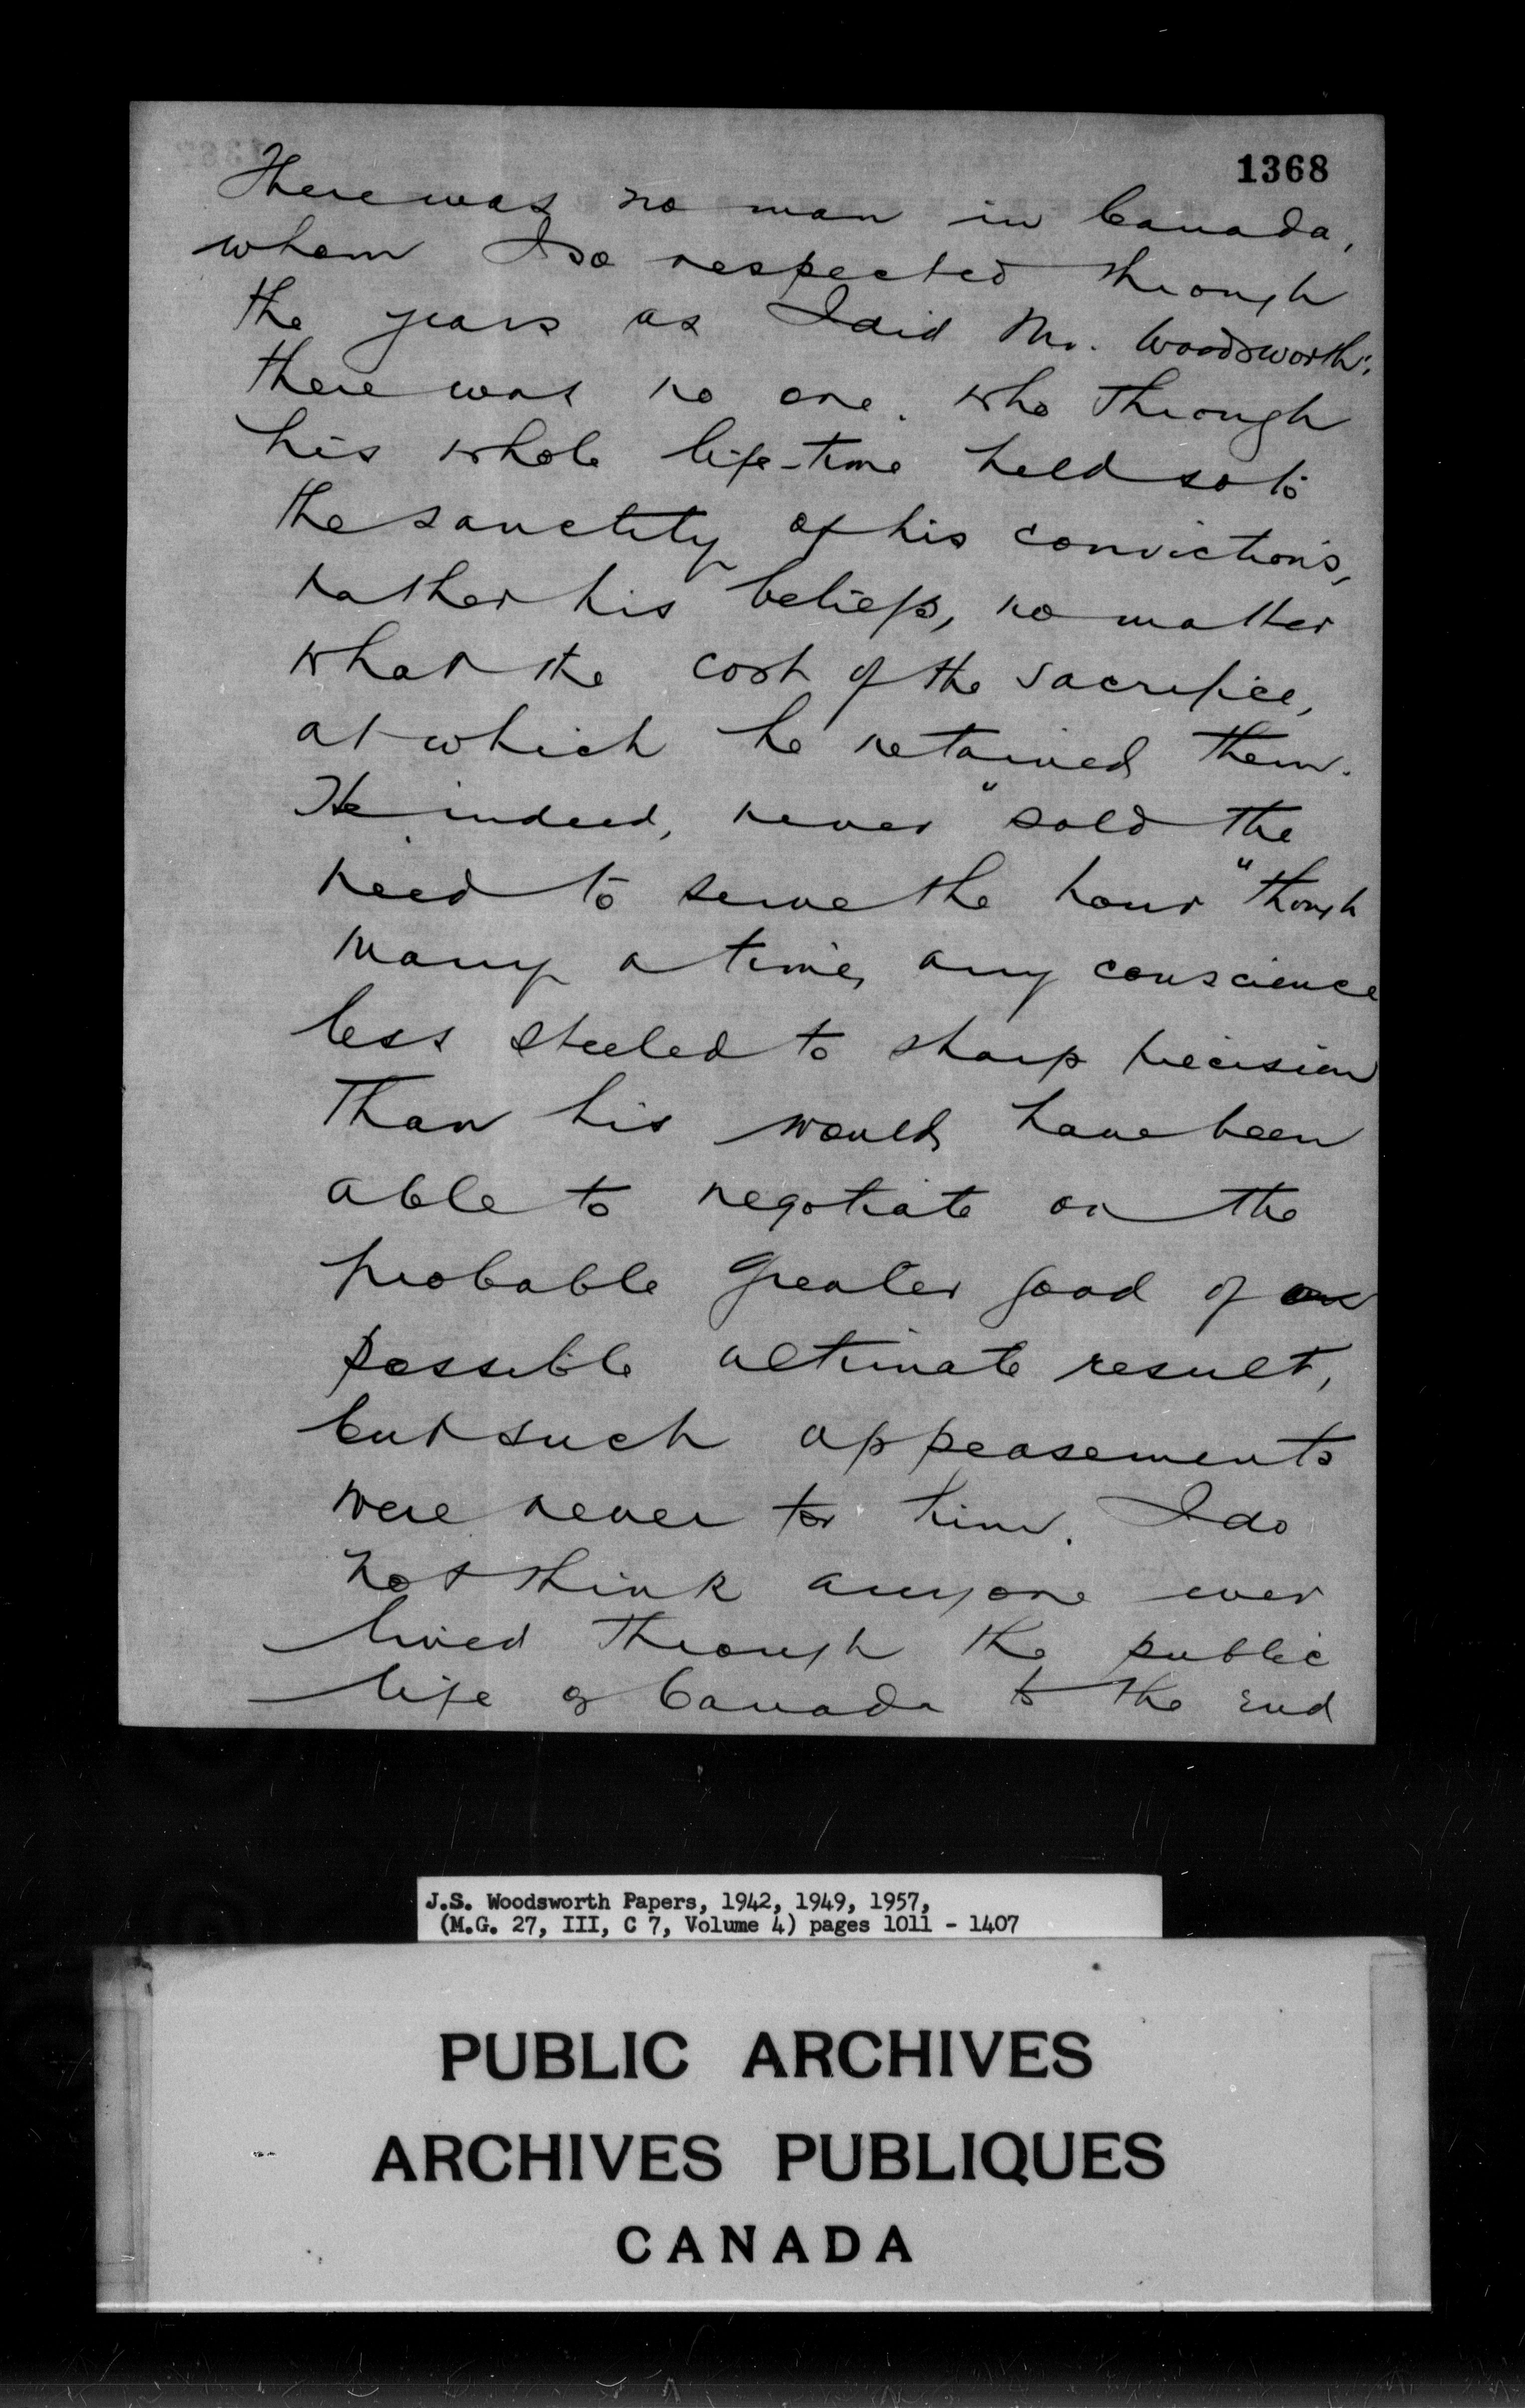 1368
There was no man in Canada,
whom I so respected through
the years as I did Mr. Woodsworth;
there was no one. who through
his whole life-time held so to
the sanctity of his convictions,
rather his beliefs, no matter
what the cost of the sacrifice,
at which he retained them.
He indeed, never "sold the
need to serve the hour" though
many a time, any conscience
less steeled to sharp precision
than his would have been
able to negotiate on the
probable greater good of
possible ultimate result,
but such appeasements
were never for him. I do
not think anyone ever
lived through the public
life of Canada to the end
J.S. Woodsworth Papers, 1942, 1949, 1957,
(M.G. 27, III, C 7, Volume 4) pages 1011 - 1407
PUBLIC ARCHIVES
ARCHIVES PUBLIQUES
CANADA